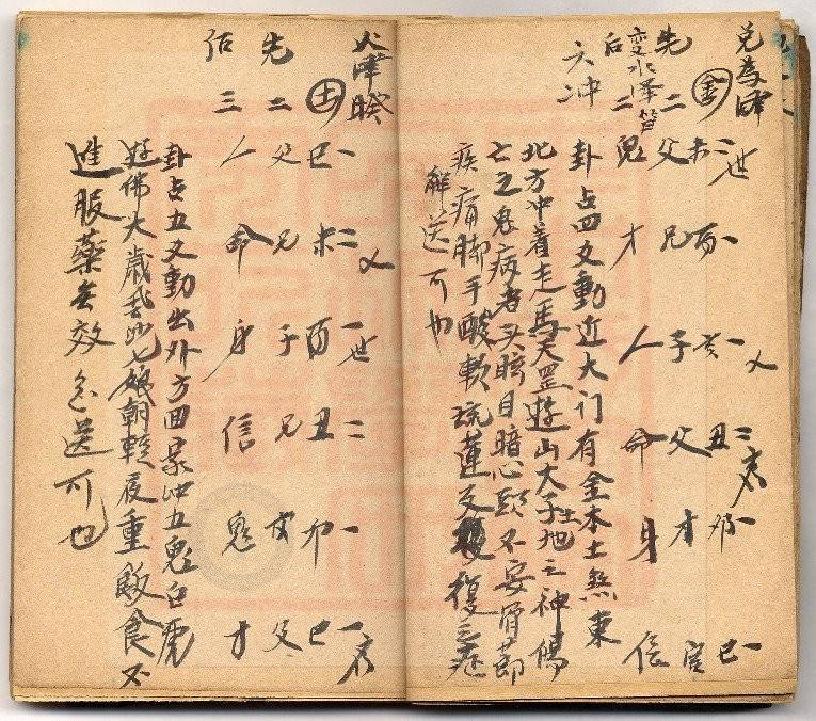 兑為澤
金 未二世 酉一 亥一乂 丑二应 卯一 巳一
先二 父 兄 子 父 才 官
变水泽节
后二 鬼 才 人 命 身 信
六冲
卦占四爻動近大门有金木土煞東
北方冲着走馬天罡遊山大子土地之神傷
七五鬼病者头暗目暗心頭不安骨節
疾痛脚手酸軟琉蓮反復之症
解送可也
火澤睽
土 巳一 未二乂 酉一世 丑二 卯一 巳一应
先二 父 兄 子 兄 父
后三 人 命 身 信 鬼 才
卦占五爻動出外方回家冲五鬼白虎
遊佛大歳飛沙七娘朝輕夜重飯食不
進服藥無效急送可也